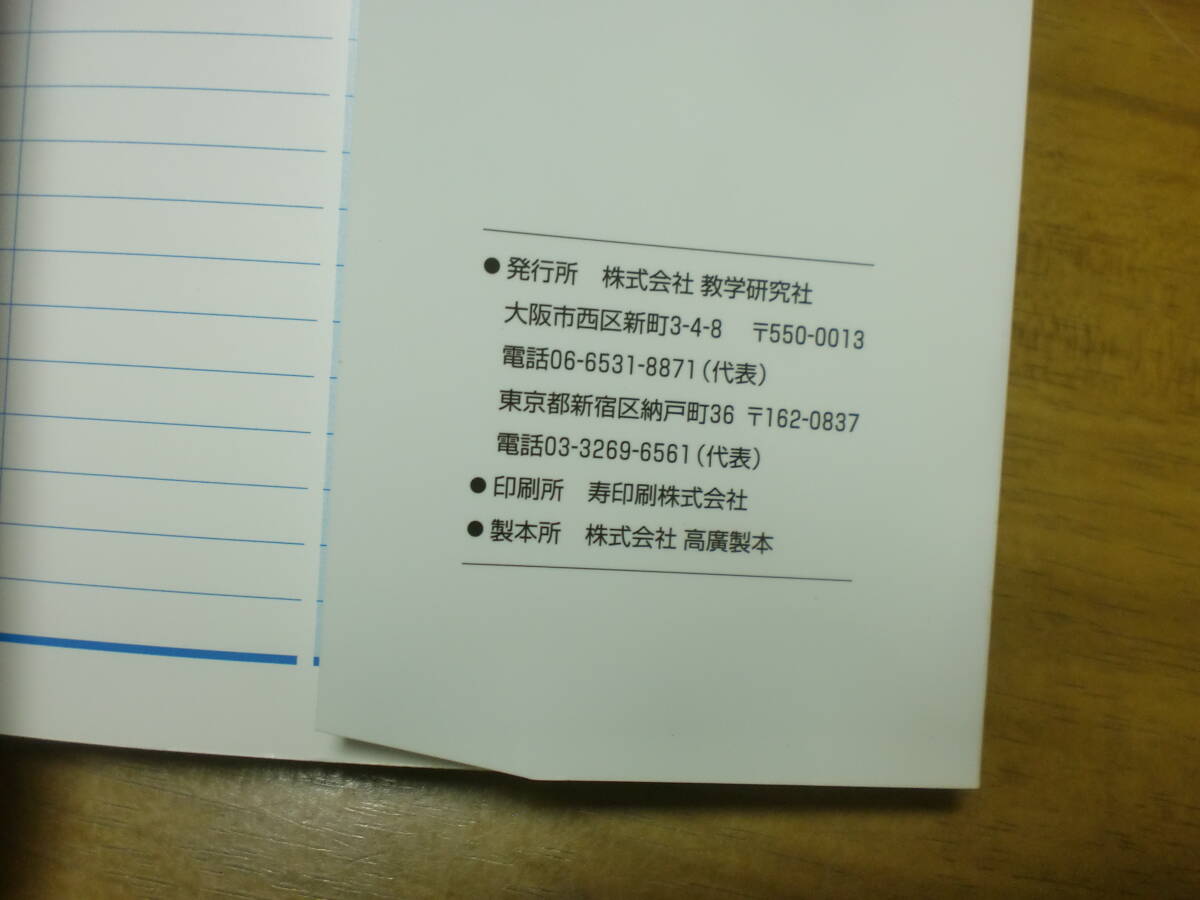 ●発行所 株式会社 教学研究社
大阪市西区新町3-4-8 〒550-0013
電話06-6531-8871(代表)
東京都新宿区納戸町36 〒162-0837
電話03-3269-6561(代表)
●印刷所 寿印刷株式会社
●製本所 株式会社 高廣製本